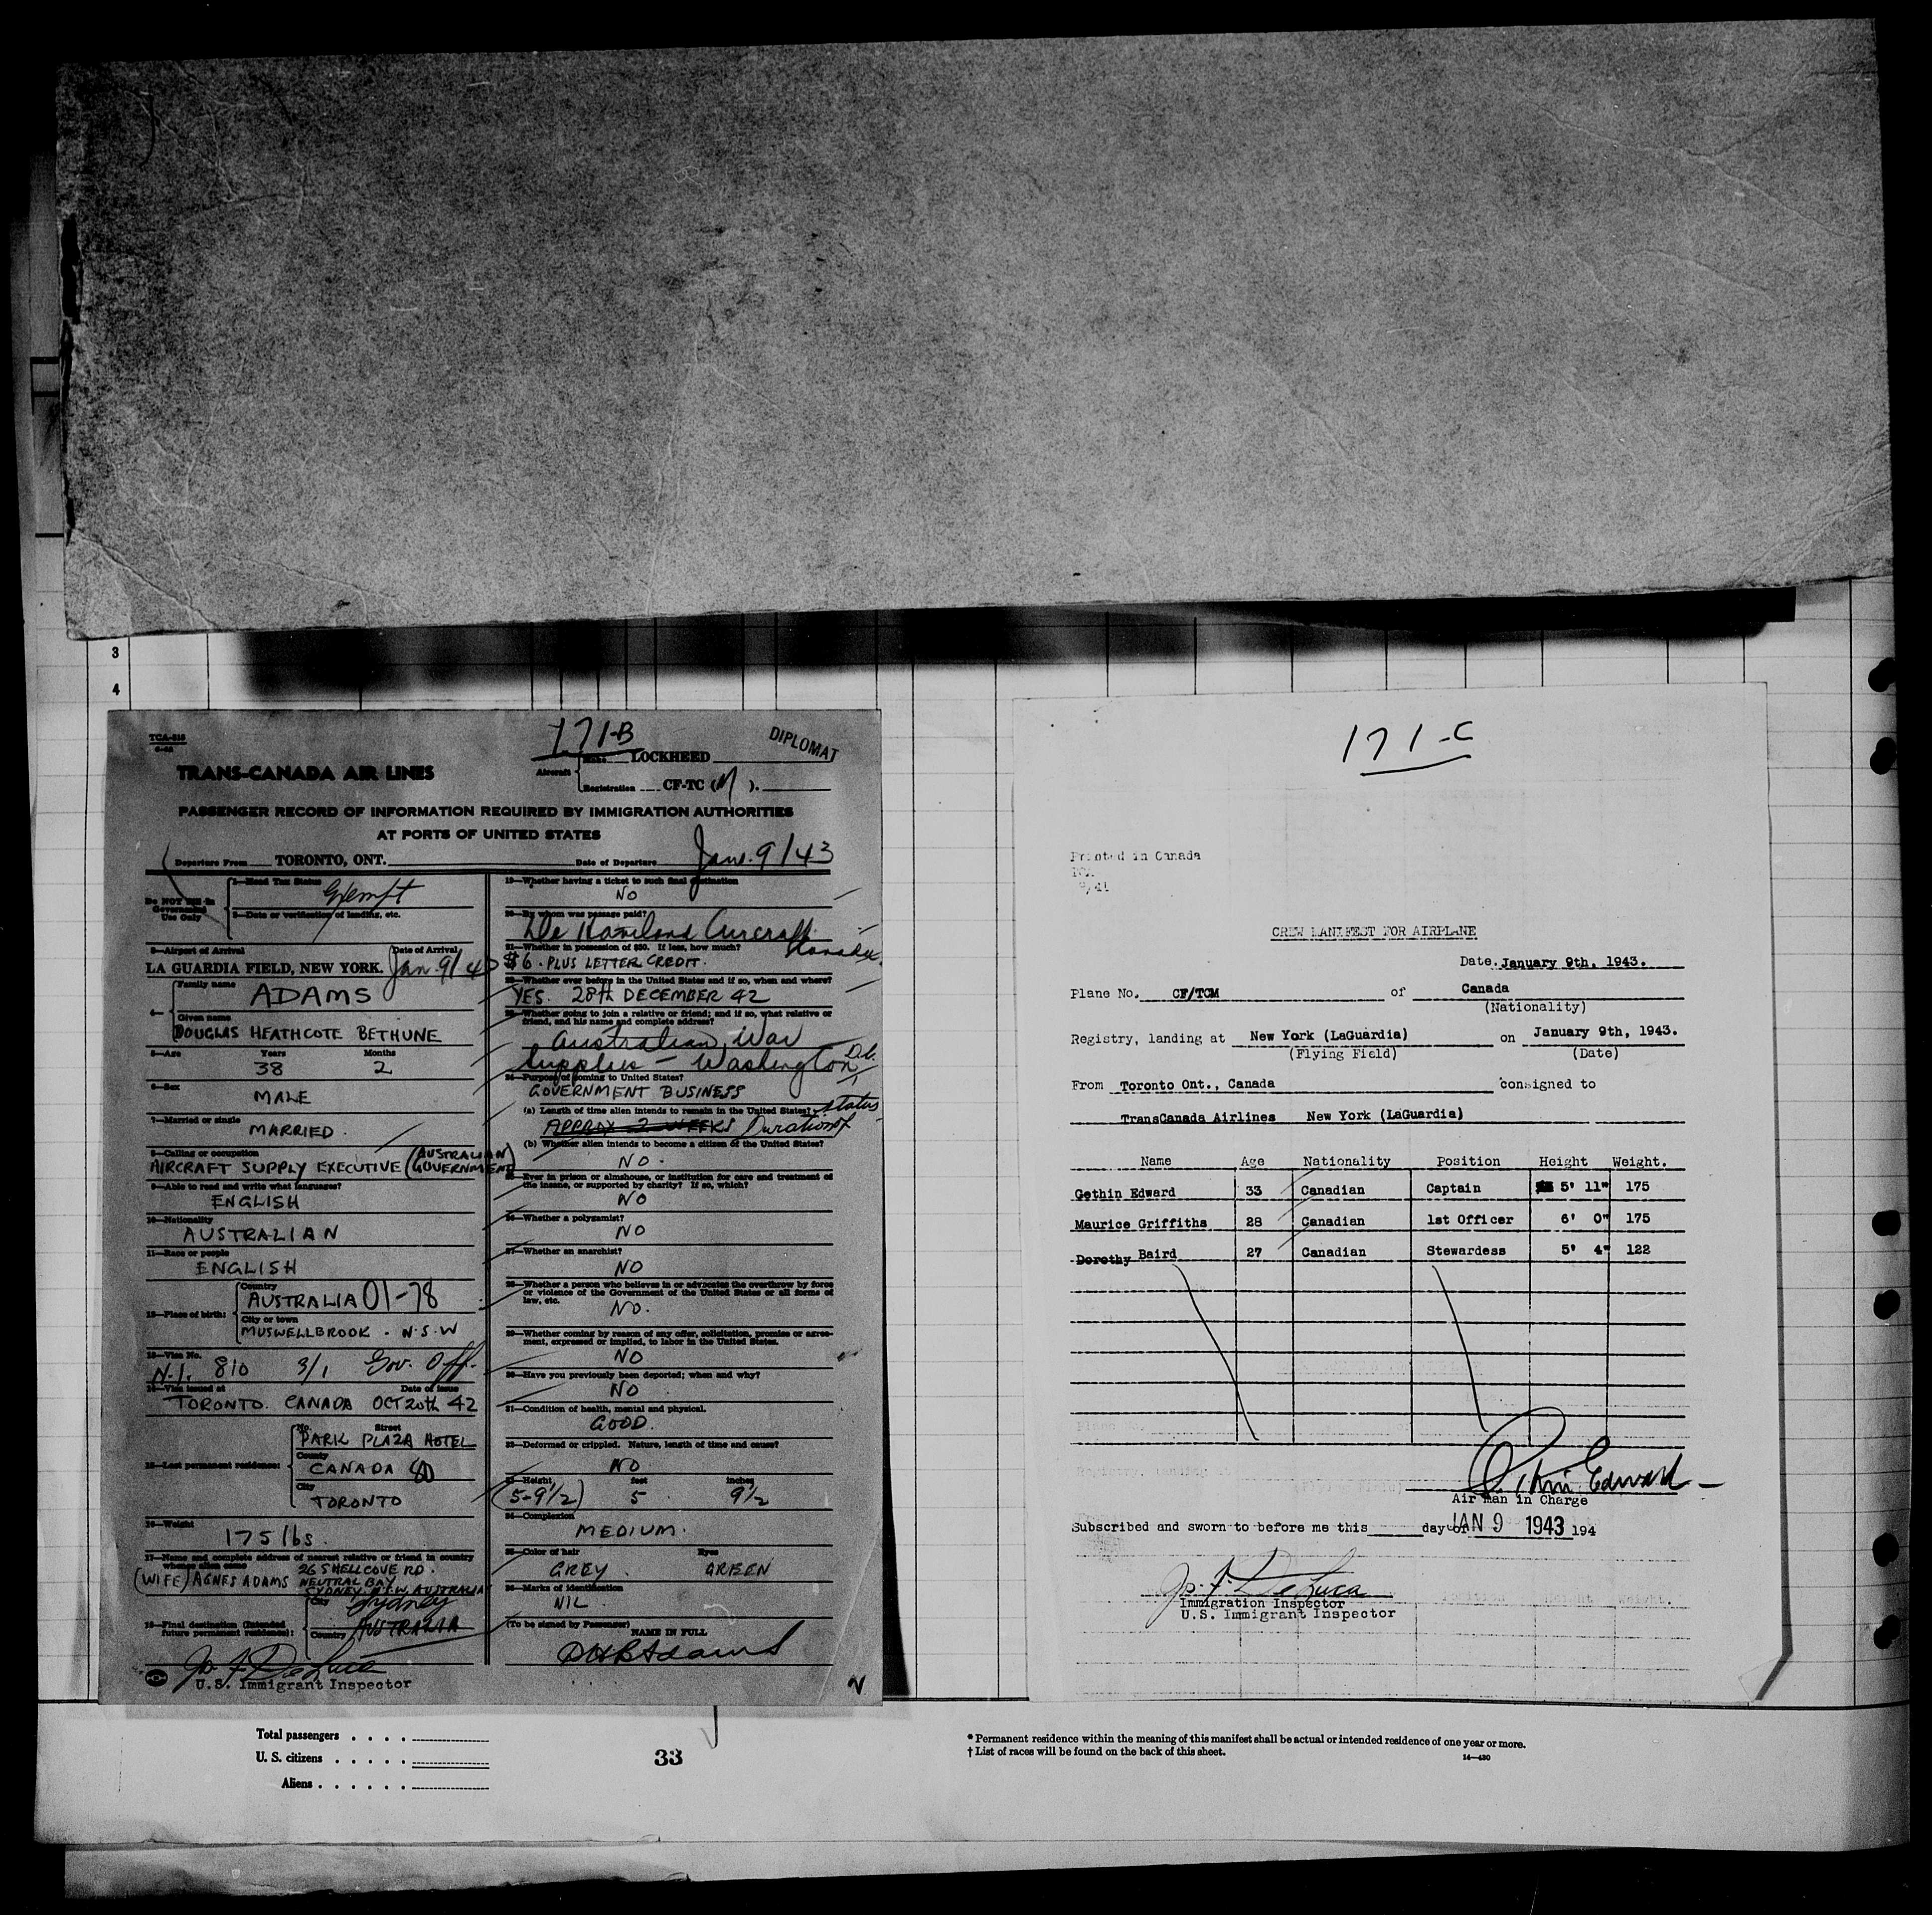 3
4
TCA-516
171-B
DIPLOMAT
TRANS-CANADA AIR LINES
Aircraft
Make LOCKHEED
Registration CF-TC (M).
PASSENGER RECORD OF INFORMATION REQUIRED BY IMMIGRATION AUTHORITIES
AT PORTS OF UNITED STATES
Departure From TORONTO, ONT. Date of Departure Jan. 9/43
Do NOT Use in Governments Use Only
1—Head Tax Status Exempt
2—Date or verification of landing, etc.
3—Airport of Arrival Date of Arrival
LA GUARDIA FIELD, NEW YORK. Jan 9/43
4— Family name ADAMS
Given name
DOUGLAS HEATHCOTE BETHUNE
5—Age Years Months
38 2
6—Sex
MALE
7—Married or single
MARRIED.
8—Calling or occupation
AIRCRAFT SUPPLY EXECUTIVE (AUSTRALIAN GOVERNMENT)
9—Able to read and write what languages?
ENGLISH
10—Nationality
AUSTRALIAN
11—Race or people
ENGLISH
12—Place of birth:
Country
AUSTRALIA 01-78
City or town
MUSWELLBROOK - N.S.W
13—Visa No.
N.I. 810 3/1 Gov. Off.
14—Visa issued at Date of issue
TORONTO. CANADA OCT 20th 42
15—Last permanent residence:
No. Street
PARK PLAZA HOTEL
County
CANADA 80
City
TORONTO
16—Weight
175 lbs.
17—Name and complete address of nearest relative or friend in country whence alien came
(WIFE) AGNES ADAMS 26 SHELLCOVE RD.
NEUTRAL BAY
SYDNEY. N.S.W. AUSTRALIA
18—Final destination (Intended future permanent residence):
City Sydney
Country AUSTRALIA
Jo. F. DeLuca
U.S. Immigrant Inspector
19—Whether having a ticket to such final destination
NO
20—By whom was passage paid?
De Haviland Aircraft Canada
21—Whether in possession of $50. If less, how much?
$6. PLUS LETTER CREDIT.
22—Whether ever before in the United States and if so, when and where?
YES. 28th DECEMBER 42
23—Whether going to join a relative or friend; and if so, what relative or friend, and his name and complete address?
Australian War
Supplies - Washington D.C.
24—Purpose of coming to United States?
GOVERNMENT BUSINESS
(a) Length of time alien intends to remain in the United States? status
APPROX 2 WEEKS Duration of
(b) Whether alien intends to become a citizen of the United States?
NO.
25—Ever in prison or almshouse, or institution for care and treatment of the insane, or supported by charity? If so, which?
NO
26—Whether a polygamist?
NO
27—Whether an anarchist?
NO
28—Whether a person who believes in or advocates the overthrow by force or violence of the Government of the United States or all forms of law, etc.
NO.
29—Whether coming by reason of any offer, solicitation, promise or agreement, expressed or implied, to labor in the United States.
NO
30—Have you previously been deported; when and why?
NO
31—Condition of health, mental and physical.
GOOD.
32—Deformed or crippled. Nature, length of time and cause?
NO
33—Height feet inches
(5-9 1/2) 5 9 1/2
34—Complexion
MEDIUM.
35—Color of hair Eyes
GREY. GREEN
36—Marks of identification
NIL
(To be signed by Passenger)
NAME IN FULL
DHBAdams
171-C
Printed in Canada
CREW MANIFEST FOR AIRPLANE
Date. January 9th, 1943.
Plane No. CF/TCM of Canada
(Nationality)
Registry, landing at New York (LaGuardia) on January 9th, 1943.
(Flying Field) (Date)
From Toronto Ont., Canada consigned to
TransCanada Airlines New York (LaGuardia)
Name Age Nationality Position Height Weight.
Gethin Edward 33 Canadian Captain 5' 11" 175
Maurice Griffiths 28 Canadian 1st Officer 6' 0" 175
Dorothy Baird 27 Canadian Stewardess 5' 4" 122
Gethin Edward
Air Man in Charge
Subscribed and sworn to before me this day of JAN 9 1943 194
Jo. F. DeLuca
Immigration Inspector
U.S. Immigrant Inspector
Total passengers
U. S. citizens
Aliens
33
* Permanent residence within the meaning of this manifest shall be actual or intended residence of one year or more.
† List of races will be found on the back of this sheet.
14—430